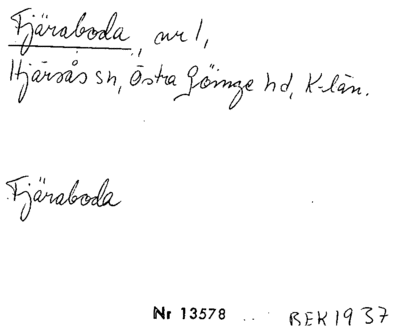 Fjäraboda, nr 1,
Hjärsås sn, Östra Göinge hd, K-län.
Fjäraboda
Nr 13578 BEK1937